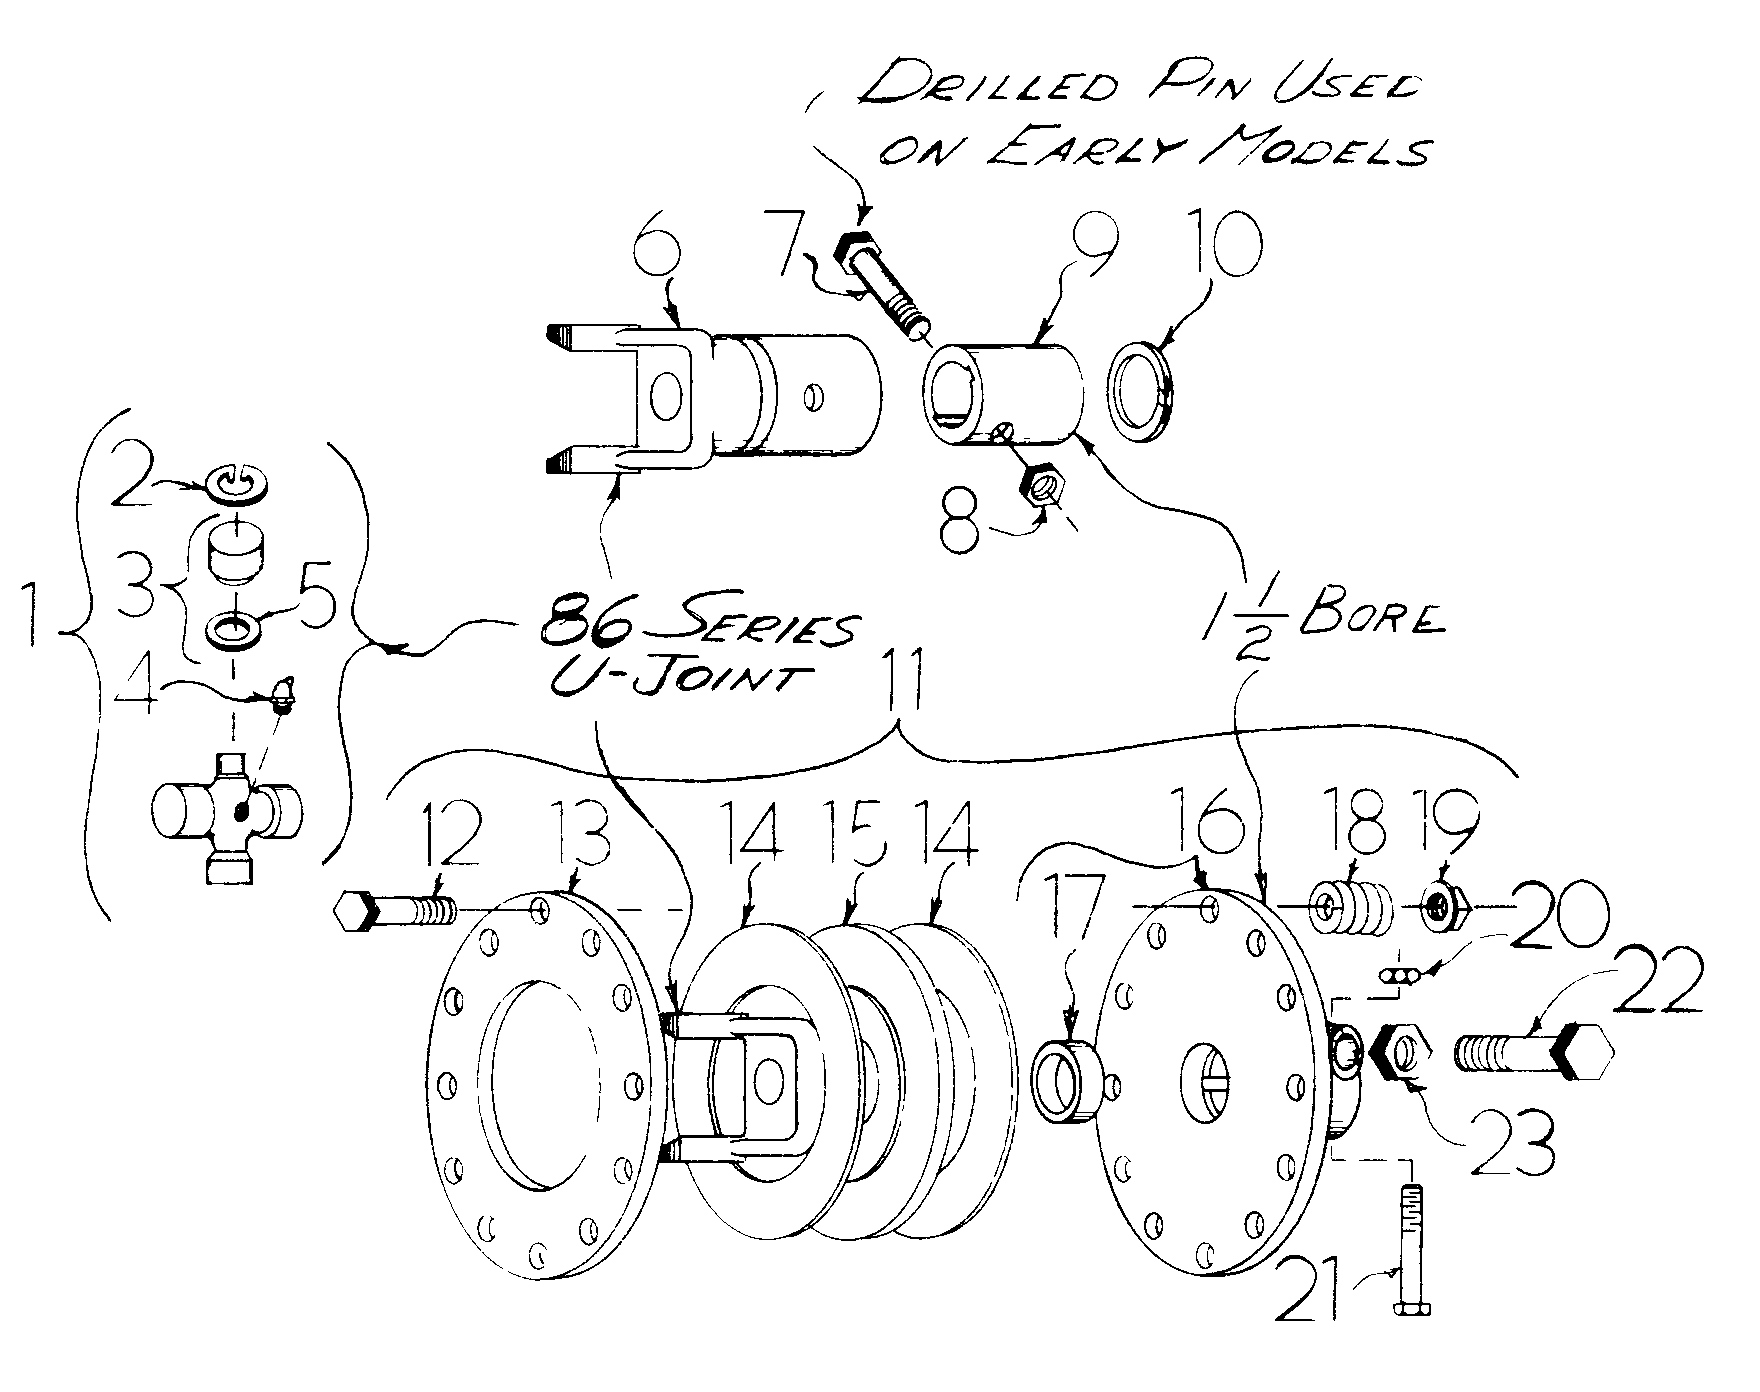 DRILLED PIN USED
ON EARLY MODELS
6
7
9
10
2
3
5
1
4
8
86 SERIES
U-JOINT
1 1/2 BORE
11
12
13
14
15
14
16
17
18
19
20
22
23
21